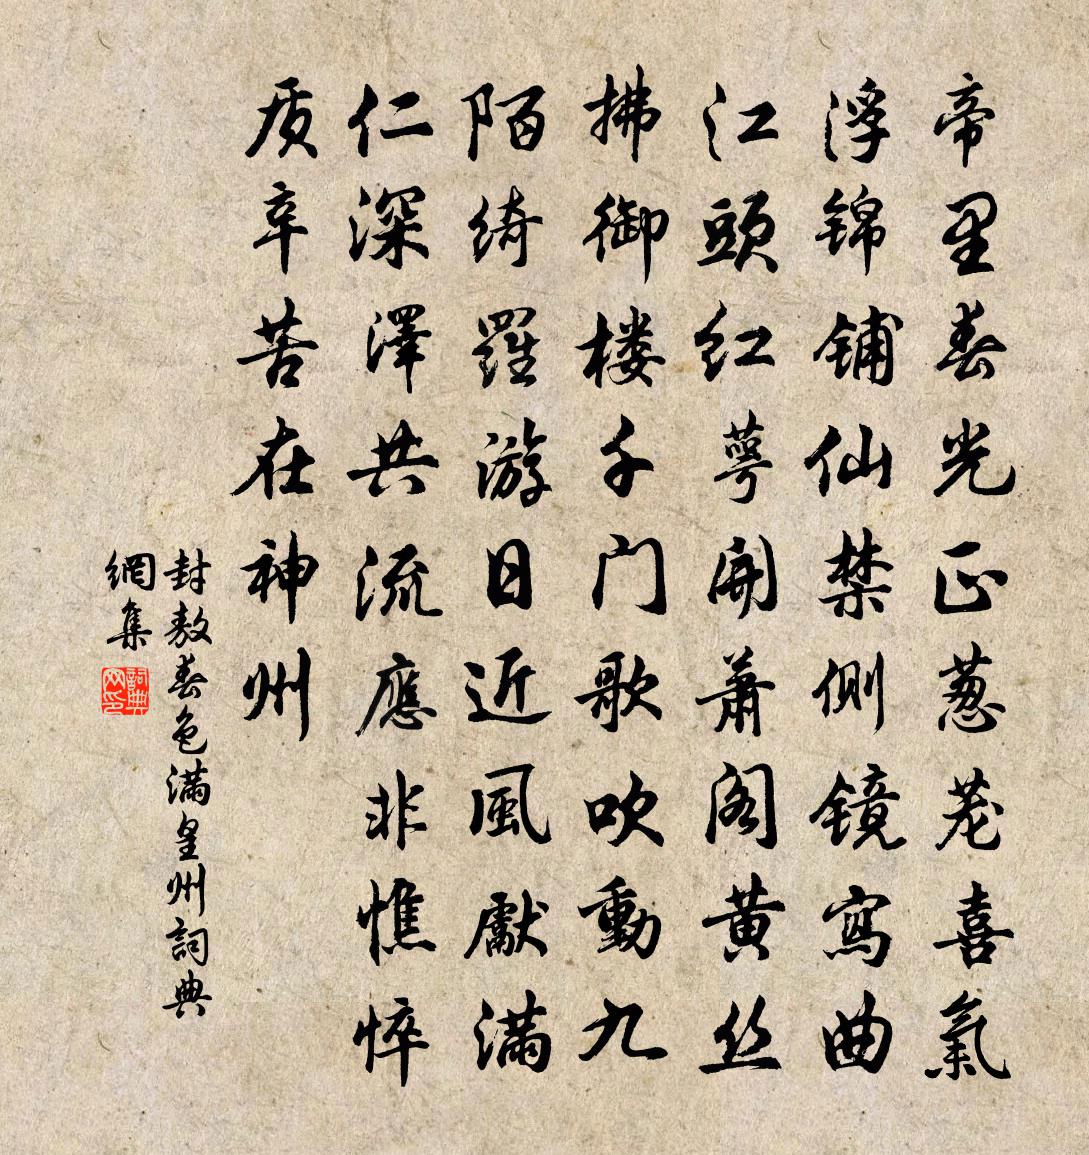 帝里春光正葱茏喜氣
浮锦铺仙禁侧镜寫曲
江頭红萼開萧阁黄丝
拂御楼千门歌吹動九
陌绮羅游日近風獻滿
仁深澤共流應非憔悴
质辛苦在神州
封敖春色滿皇州詞典
網集
詞典网印